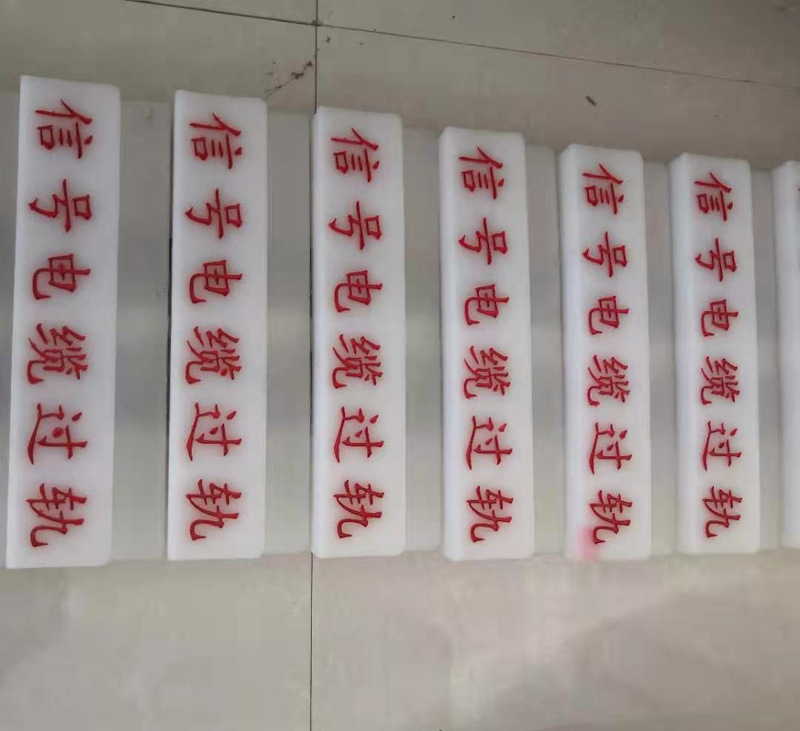 信号电缆过轨
信号电缆过轨
信号电缆过轨
信号电缆过轨
信号电缆过轨
信号电缆过轨